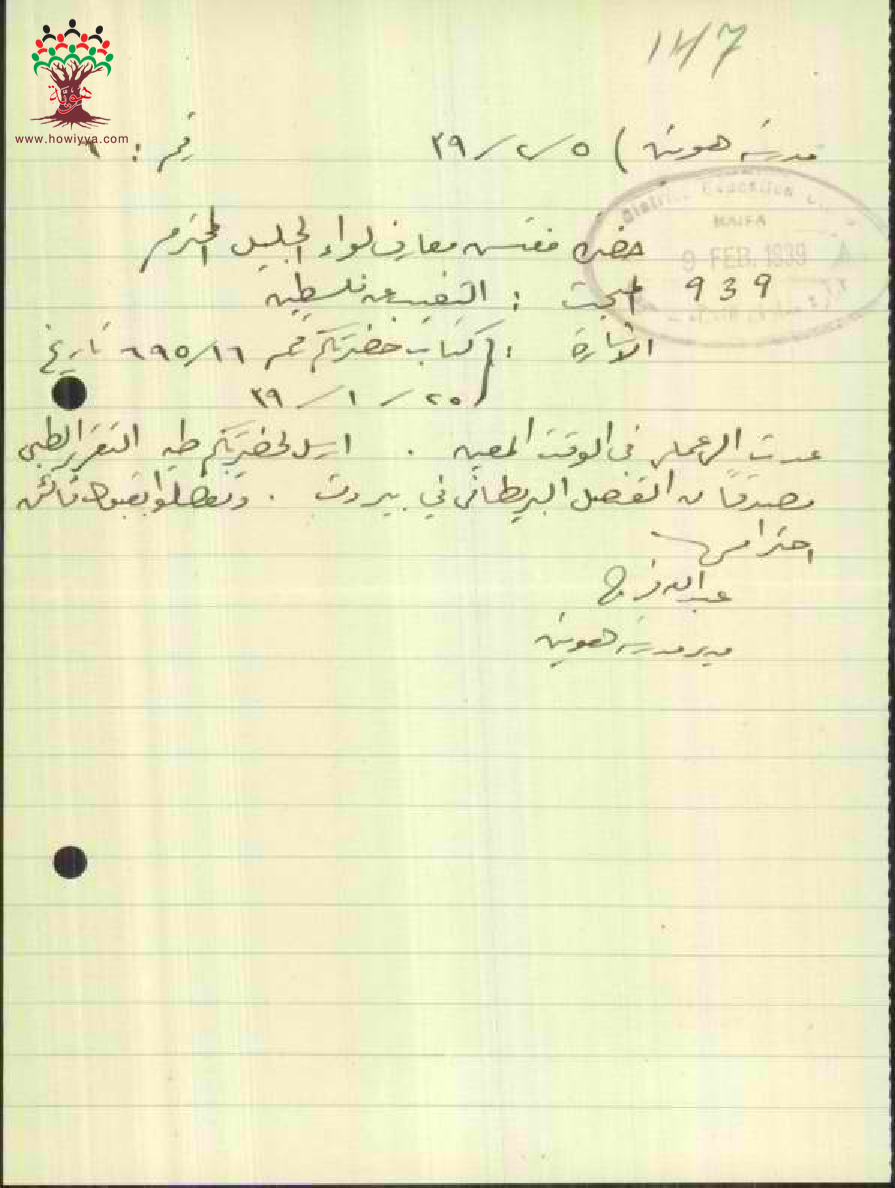 ١٤٧
هوية
www.howiyya.com
مدرسة هونين ) ٥ / ٢ / ٣٩ رقم : ٦
District Education
HAIFA
9 FEB. 1939
939
حضرة مفتش معارف لواء الجليل المحترم
المبحث : التغيب عن فلسطين
الاشارة : كتاب حضرتكم رقم ٦٩٥/١٦ تاريخ
٢٥ / ١ / ٣٩
عدت الى عملي في الوقت المعين . ارسل لحضرتكم طيه التقرير الطبي
مصدقا من القنصل البريطاني في بيروت . وتفضلوا بقبول فائق
احترامي
عبدالله فرج
مدير مدرسة هونين